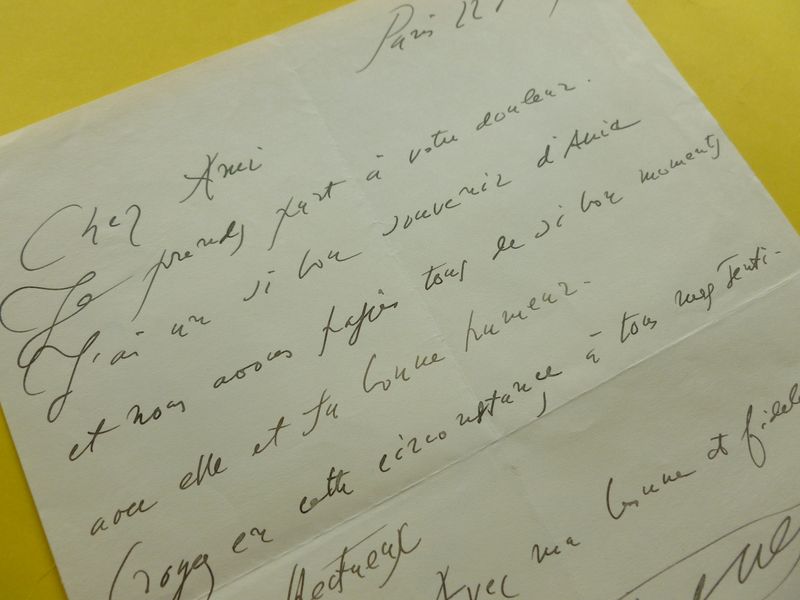 Paris 22
Cher Ami
Je prends part à votre douleur.
J'ai un si bon souvenir d'Ania
et nous avons passé tous de si bon moments
avec elle et sa bonne humeur.
Croyez en cette circonstance, à tous mes senti-
Avec ma bonne et fidele